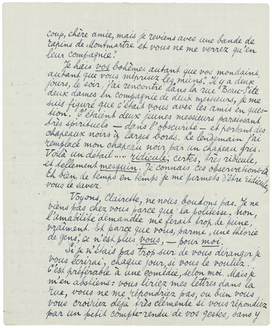 coup, chère amie, mais je reviens avec une bande de
rapins de Montmartre et vous ne me verrez qu'en
leur compagnie!
Je hais vos bohêmes autant que vos mondains,
autant que vous méprisez les miens. Il y a deux
jours, le soir, j'ai rencontré dans la rue
deux dames en compagnie de deux messieurs, je me
suis figuré que c'était vous avec les amis en ques-
tion. C'étaient deux jeunes messieurs paraissant
très spirituels — dans l'obscurité — et portant des
chapeaux noirs à larges bords. Le lendemain j'ai
remplacé mon chapeau noir par un chapeau gris.
Voilà un détail .... ridicule, certes, très ridicule,
et tellement mesquin. Je connais ces observations-là.
Et bien, de temps en temps je me permets d'être ridicule,
vous le savez.
Voyons, Clairette, ne nous boudons pas. Je ne
viens pas chez vous parce que la politesse, non,
l'amabilité demandée me ferait trop de peine,
vraiment. Et parce que vous, parmi, une théorie
de gens, ce n'est plus vous, — pour moi.
Si je n'étais pas trop sûr de vous déranger je
vous écrirai, chaque jour, si vous le vouliez.
C'est préférable à une comédie, selon moi. Mais je
m'en abstiens: vous liriez mes lettres dans la
rue, vous ne me répondrez pas, ou bien vous
vous croirez déjà très clémente si vous répondez
par un petit compte-rendu de vos gestes, sans y